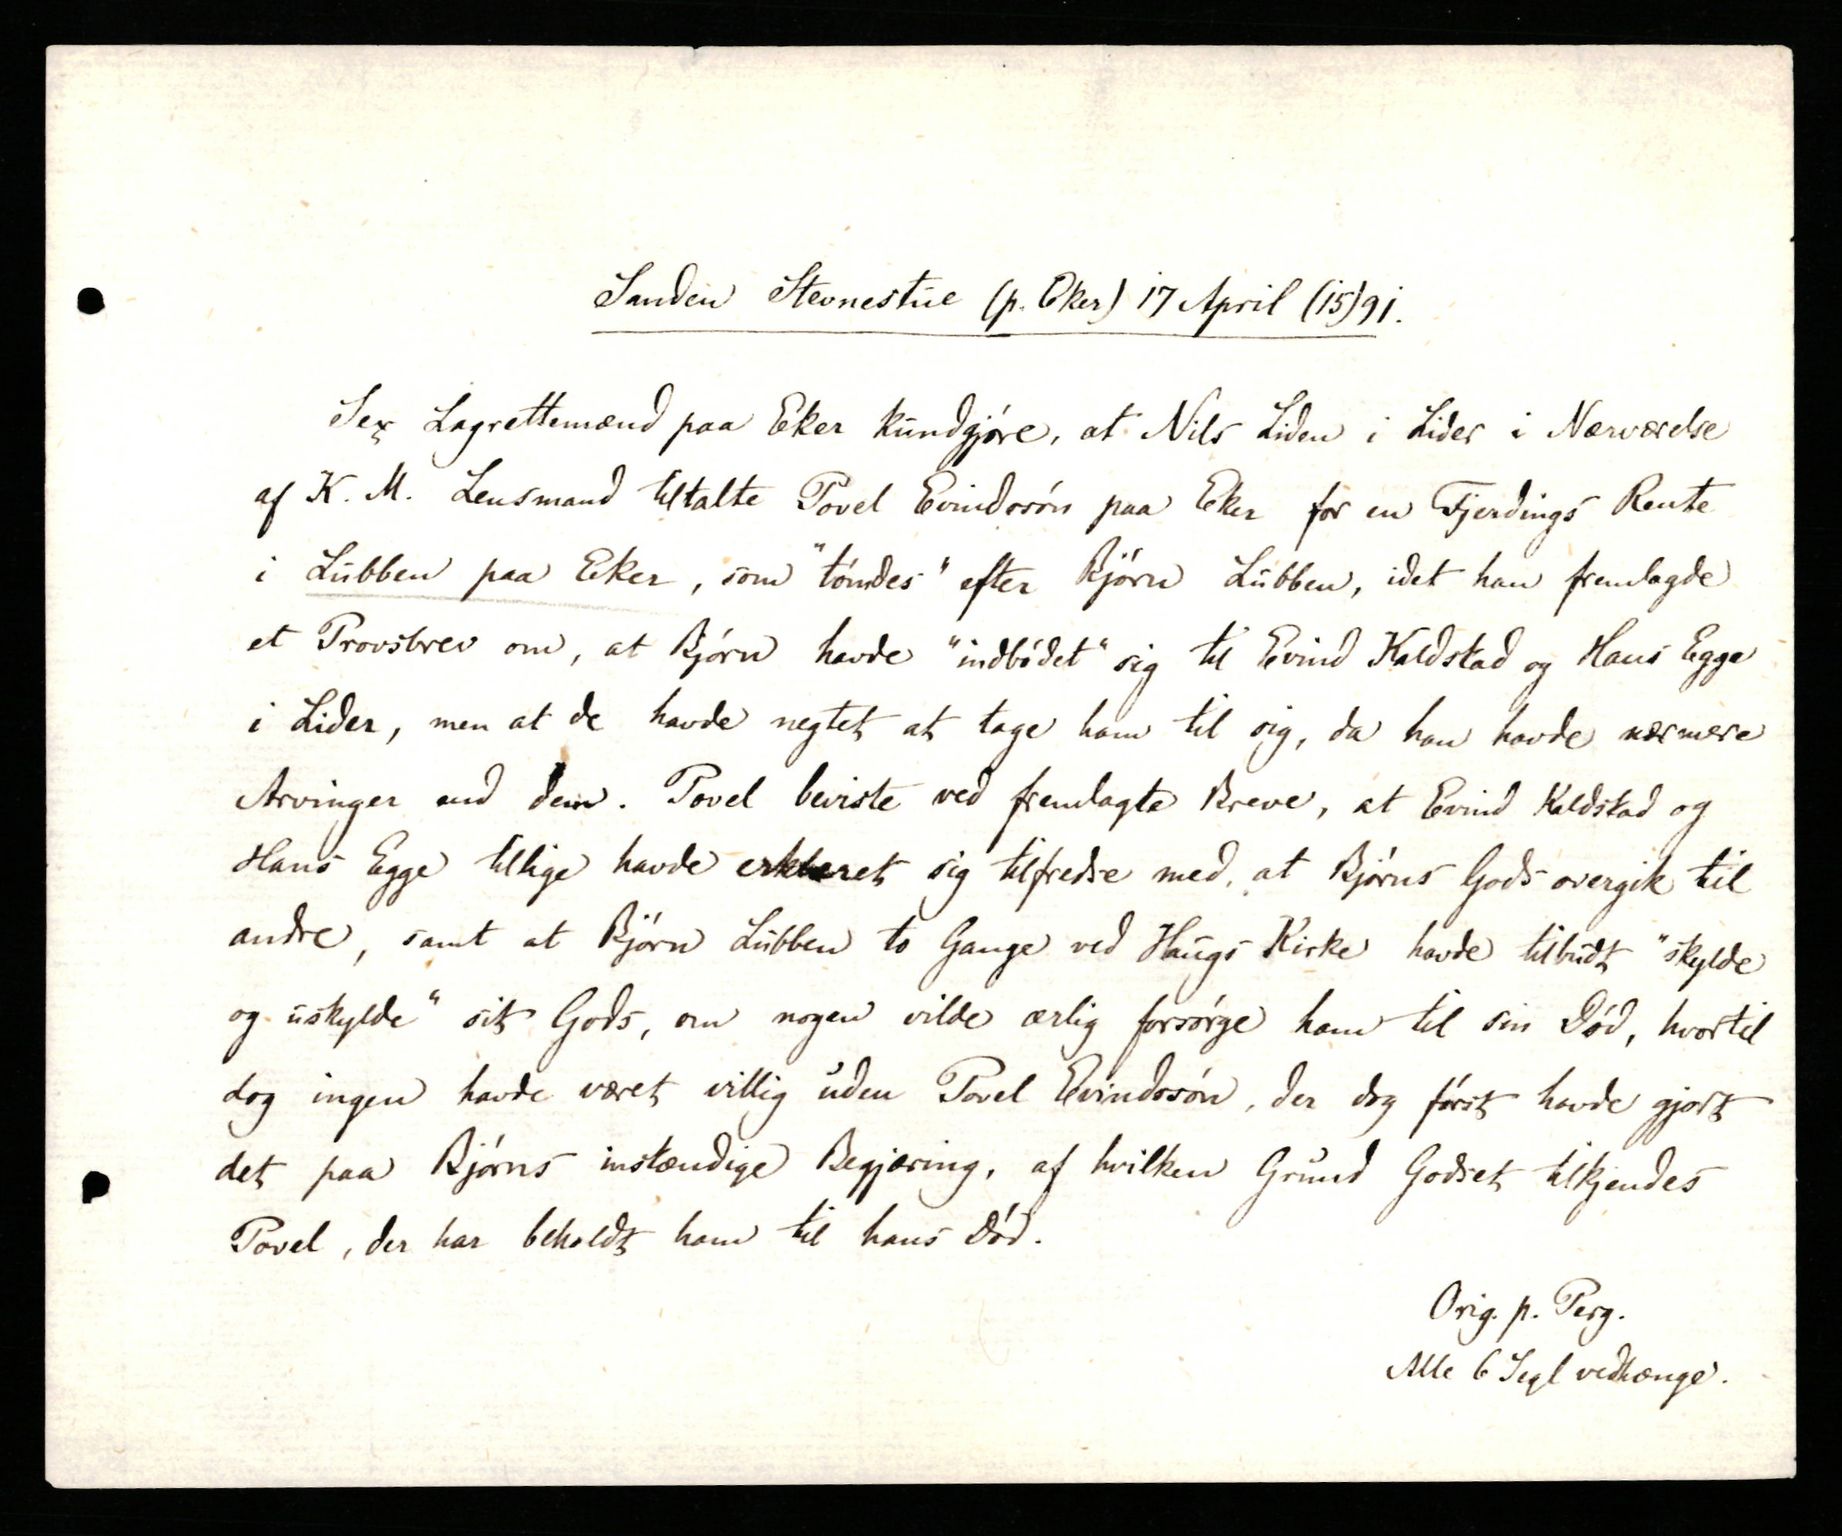 Sanden Stevnestue (p. Eker) 17 April (15)91.
Sex Lagrettemænd paa Eker kundgjøre, at Nils Liden i Lider i Nærværelse
af K. M. Lensmand tiltalte Povel Evindssøn paa Eker for en Fjerdings Rente
i Lubben paa Eker, som "tømdes" efter Bjørn Lubben, idet han fremlagde
et Provsbrev om, at Bjørn havde "indbødet" sig til Evind Kaldstad og Hans Egge
i Lider, men at de havde negtet at tage ham til sig, da han havde nærmere
Arvinger end dem. Povel beviste ved fremlagte Breve, at Evind Kaldstad og
Hans Egge tillige havde erklæret sig tilfredse med, at Bjørns Gods overgik til
andre, samt at Bjørn Lubben to Gange ved Haugs Kirke havde tilbudt "skylde
og uskylde" sit Gods, om nogen vilde ærlig forsørge ham til sin Død, hvortil
dog ingen havde været villig uden Povel Evindssøn, der dog først havde gjort
det paa Bjørns instændige Begjæring, af hvilken Grund Godset tilkjendes
Povel, der har beholdt ham til hans Død.
Orig. p. Perg.
Alle 6 Segl vedhænge.